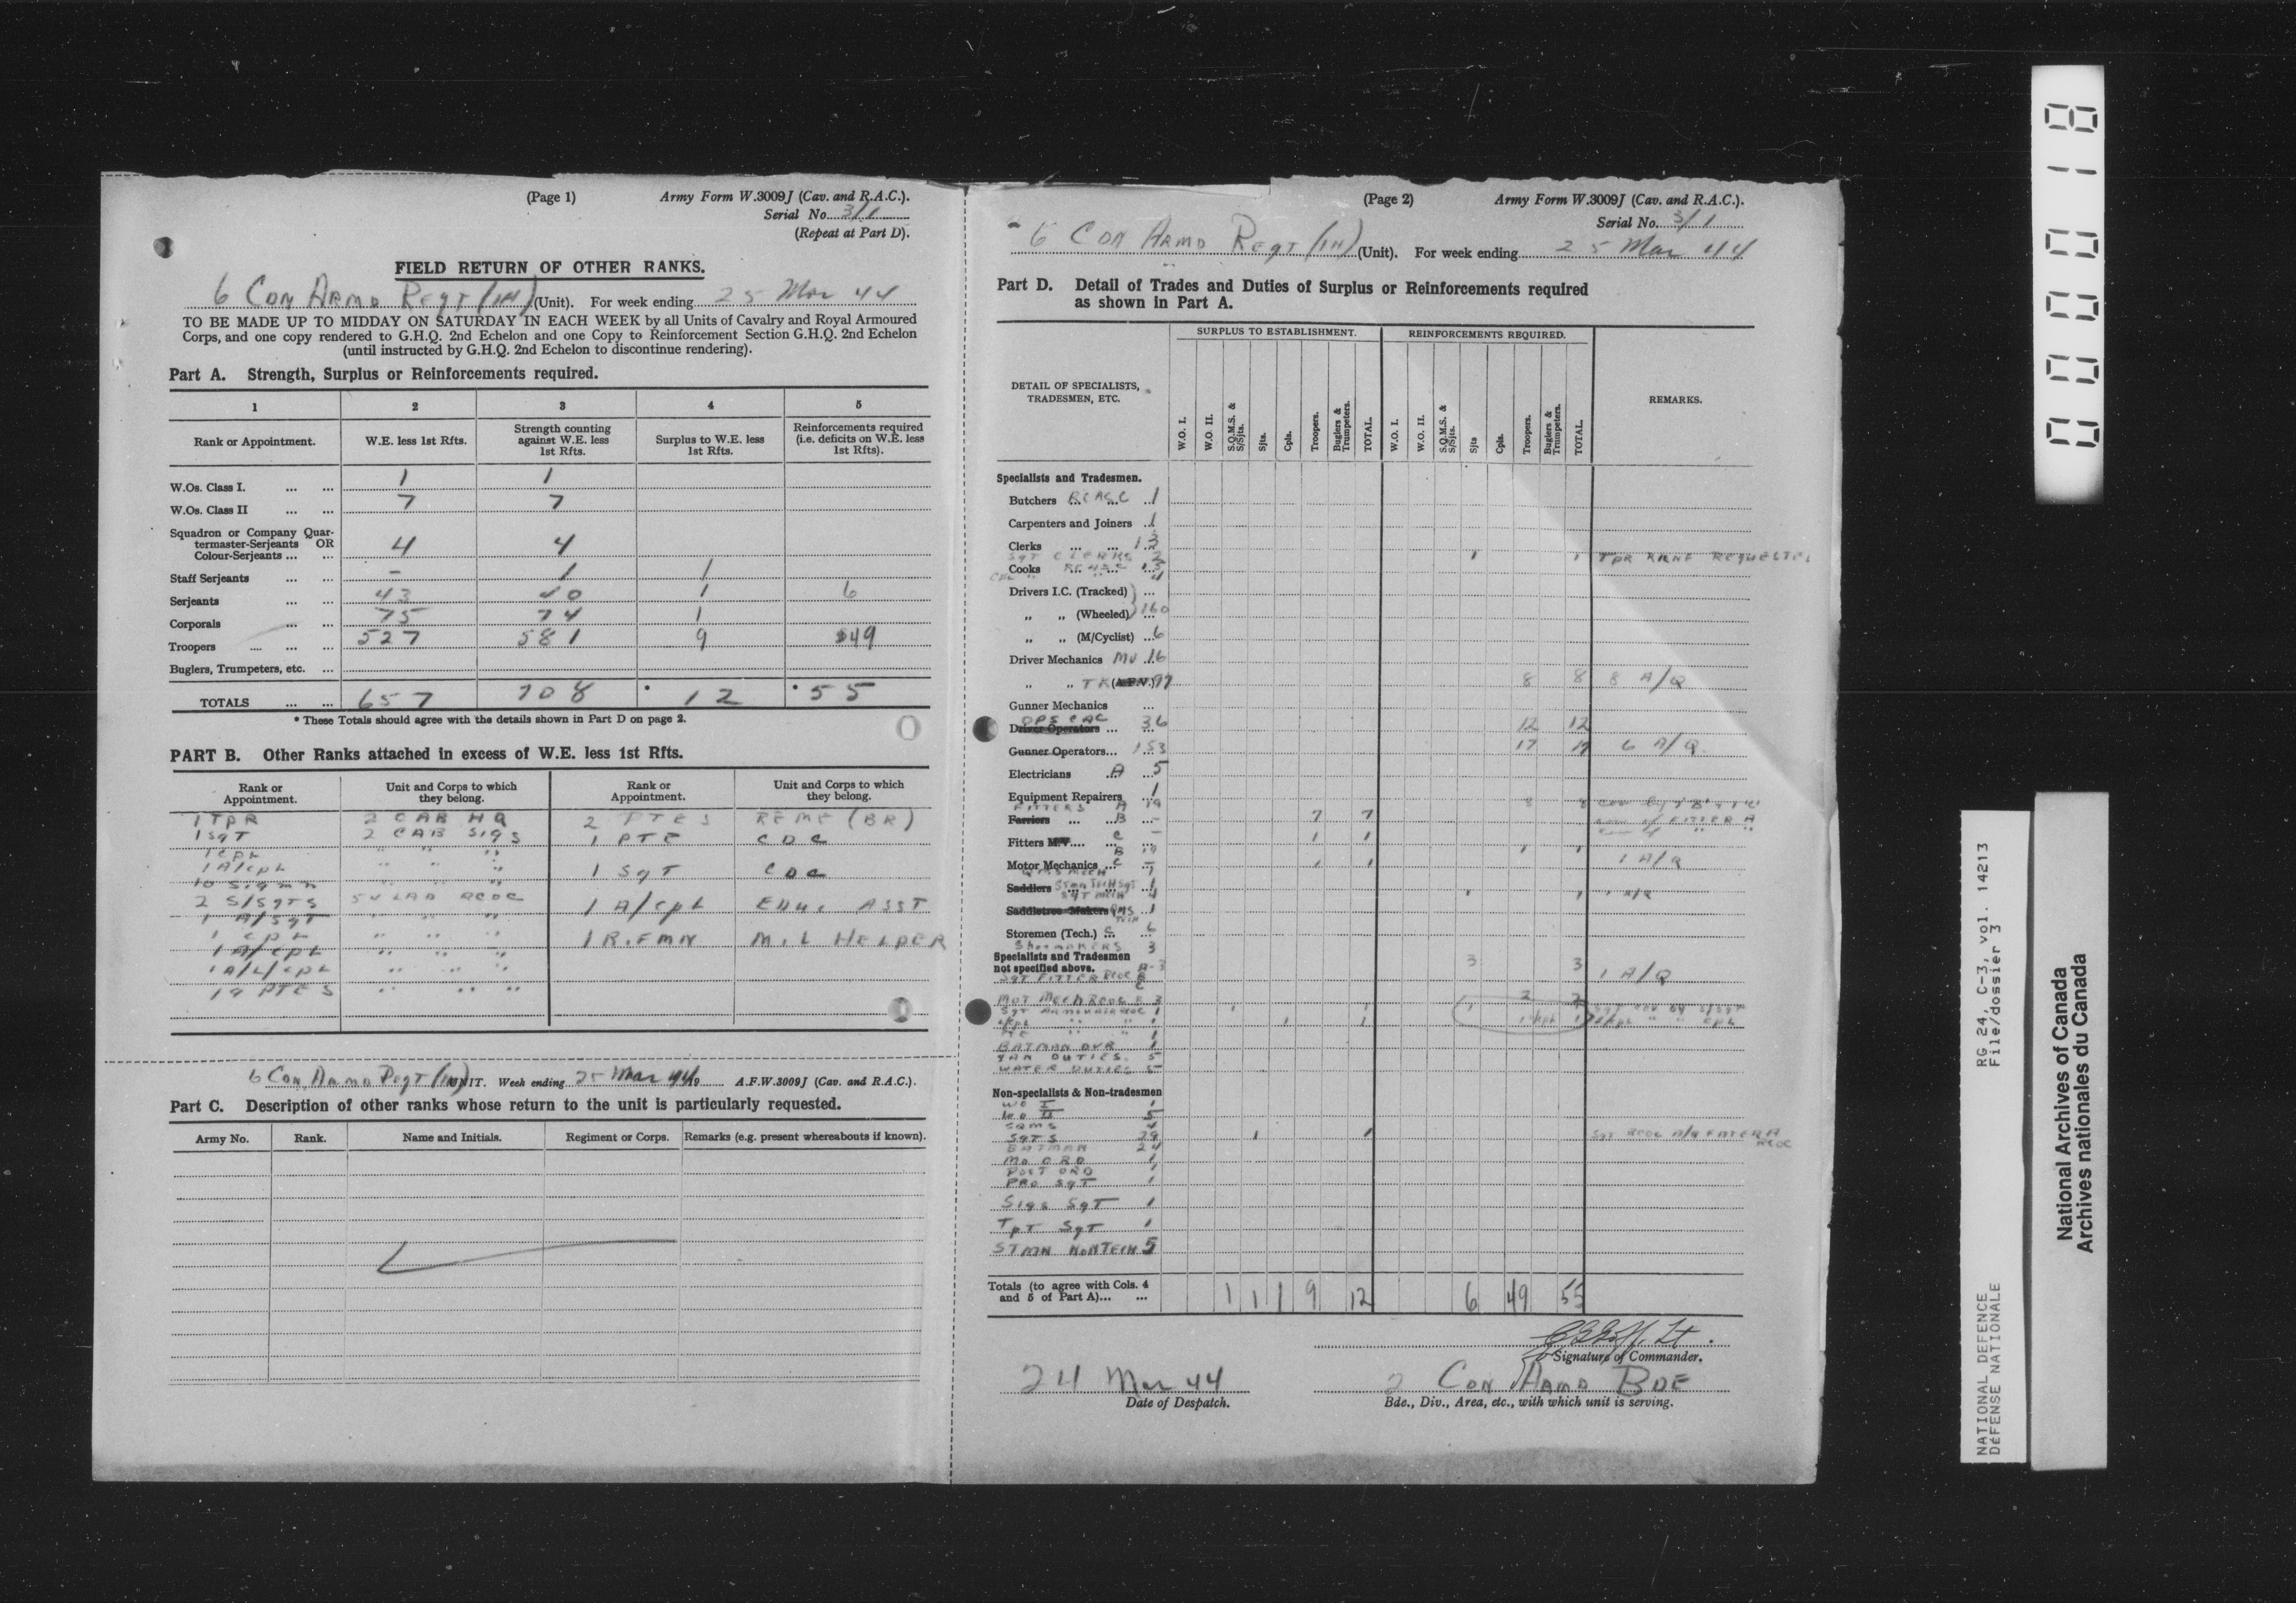 (Page 1) Army Form W.3009J (Cav. and R.A.C.).
Serial No. 3/1
(Repeat at Part D).
FIELD RETURN OF OTHER RANKS.
6 CDN ARMD REGT (1H) (Unit). For week ending 25 Mar 44
TO BE MADE UP TO MIDDAY ON SATURDAY IN EACH WEEK by all Units of Cavalry and Royal Armoured
Corps, and one copy rendered to G.H.Q. 2nd Echelon and one Copy to Reinforcement Section G.H.Q. 2nd Echelon
(until instructed by G.H.Q. 2nd Echelon to discontinue rendering).
Part A. Strength, Surplus or Reinforcements required.
1 2 3 4 5
Rank or Appointment. W.E. less 1st Rfts. Strength counting against W.E. less 1st Rfts. Surplus to W.E. less 1st Rfts. Reinforcements required (i.e. deficits on W.E. less 1st Rfts).
W.Os. Class I. ... ... 1 1
W.Os. Class II ... ... 7 7
Squadron or Company Quar-
termaster-Serjeants OR
Colour-Serjeants ... ... 4 4
Staff Serjeants ... ... - 1 1
Serjeants ... ... 43 40 1 6
Corporals ... ... 75 74 1
Troopers ... ... ... 527 581 9 49
Buglers, Trumpeters, etc. ...
TOTALS ... ... 657 708 * 12 * 55
* These Totals should agree with the details shown in Part D on page 2.
PART B. Other Ranks attached in excess of W.E. less 1st Rfts.
Rank or Appointment. Unit and Corps to which they belong. Rank or Appointment. Unit and Corps to which they belong.
1 TPR 2 CAB HQ 2 PTES REME (BR)
1 SGT 2 CAB SIGS 1 PTE CDC
1 CPL " " "
1 A/CPL " " " 1 SGT CDC
10 SIGMN " " "
2 S/SGTS 54 LAD RCOC 1 A/CPL EDUC ASST
1 A/SGT " " "
1 CPL " " " 1 R.FMN M.L HELPER
1 A/CPL " " "
1 A/L/CPL " " "
19 PTES " " "
6 CDN ARMD REGT (1H) UNIT. Week ending 25 Mar 44 19 A.F.W.3009J (Cav. and R.A.C.).
Part C. Description of other ranks whose return to the unit is particularly requested.
Army No. Rank. Name and Initials. Regiment or Corps. Remarks (e.g. present whereabouts if known).
(Page 2) Army Form W.3009J (Cav. and R.A.C.).
Serial No. 3/1
6 CDN ARMD REGT (1H) (Unit). For week ending 25 Mar 44
Part D. Detail of Trades and Duties of Surplus or Reinforcements required
as shown in Part A.
DETAIL OF SPECIALISTS, TRADESMEN, ETC. SURPLUS TO ESTABLISHMENT. REINFORCEMENTS REQUIRED. REMARKS.
W.O. I. W.O. II. S.Q.M.S. & S/Sjts. Sjts. Cpls. Troopers. Buglers & Trumpeters. TOTAL. W.O. I. W.O. II. S.Q.M.S. & S/Sjts. Sjts Cpls. Troopers. Buglers & Trumpeters. TOTAL.
Specialists and Tradesmen.
Butchers RCASC 1
Carpenters and Joiners 1
Clerks ... ... 13
SGT CLERKS 2 1 1 TPR REQUESTED
Cooks RCASC 13
CPL " " 4
Drivers I.C. (Tracked) ...
„ „ (Wheeled) 160
„ „ (M/Cyclist) ... 6
Driver Mechanics MV 16
„ „ TK (A.F.V.) 97 8 8 8 A/Q
Gunner Mechanics ...
OPS CAC
Driver Operators ... 36 12 12
Gunner Operators... 153 17 17 6 A/Q
Electricians A 5
Equipment Repairers 1
FITTERS A 19 8 8
Farriers ... B - 7 7
Fitters M.V.... C - 1 1
B 19 1 1
Motor Mechanics ... C - 1 1 1 A/Q
Saddlers STMN TECH SGT 1
SGT MECH 4 1 1 1 A/Q
Saddletree Makers RQMS 1
Storemen (Tech.) C 6
SHOEMAKERS 3
Specialists and Tradesmen
not specified above. A-3 3 3
SGT FITTER RCOC 1 A/Q
MOT MECH RCOC B 3 2 2
SGT ARMOURER RCOC 1 1 1 1 SGT REP BY S/SGT
1 1 1 CPL 1
BATMAN DVR 1
SAN DUTIES 5
WATER DUTIES 5
Non-specialists & Non-tradesmen
WO I 1
WO II 5
SQMS 4
SGTS 29 1 1 SGT RCOC A/Q FITTER A RCOC
BATMAN 24
MO ORD 1
POST ORD 1
PRO SGT 1
SIGS SGT 1
TPT SGT 1
STMN NON TECH 5
Totals (to agree with Cols. 4
and 5 of Part A)... ... 1 1 1 9 12 6 49 55
Lt.
Signature of Commander.
24 Mar 44 2 CDN ARMD BDE
Date of Despatch. Bde., Div., Area, etc., with which unit is serving.
00000018
RG 24, C-3, vol. 14213
File/dossier 3
NATIONAL DEFENCE
DÉFENSE NATIONALE
National Archives of Canada
Archives nationales du Canada